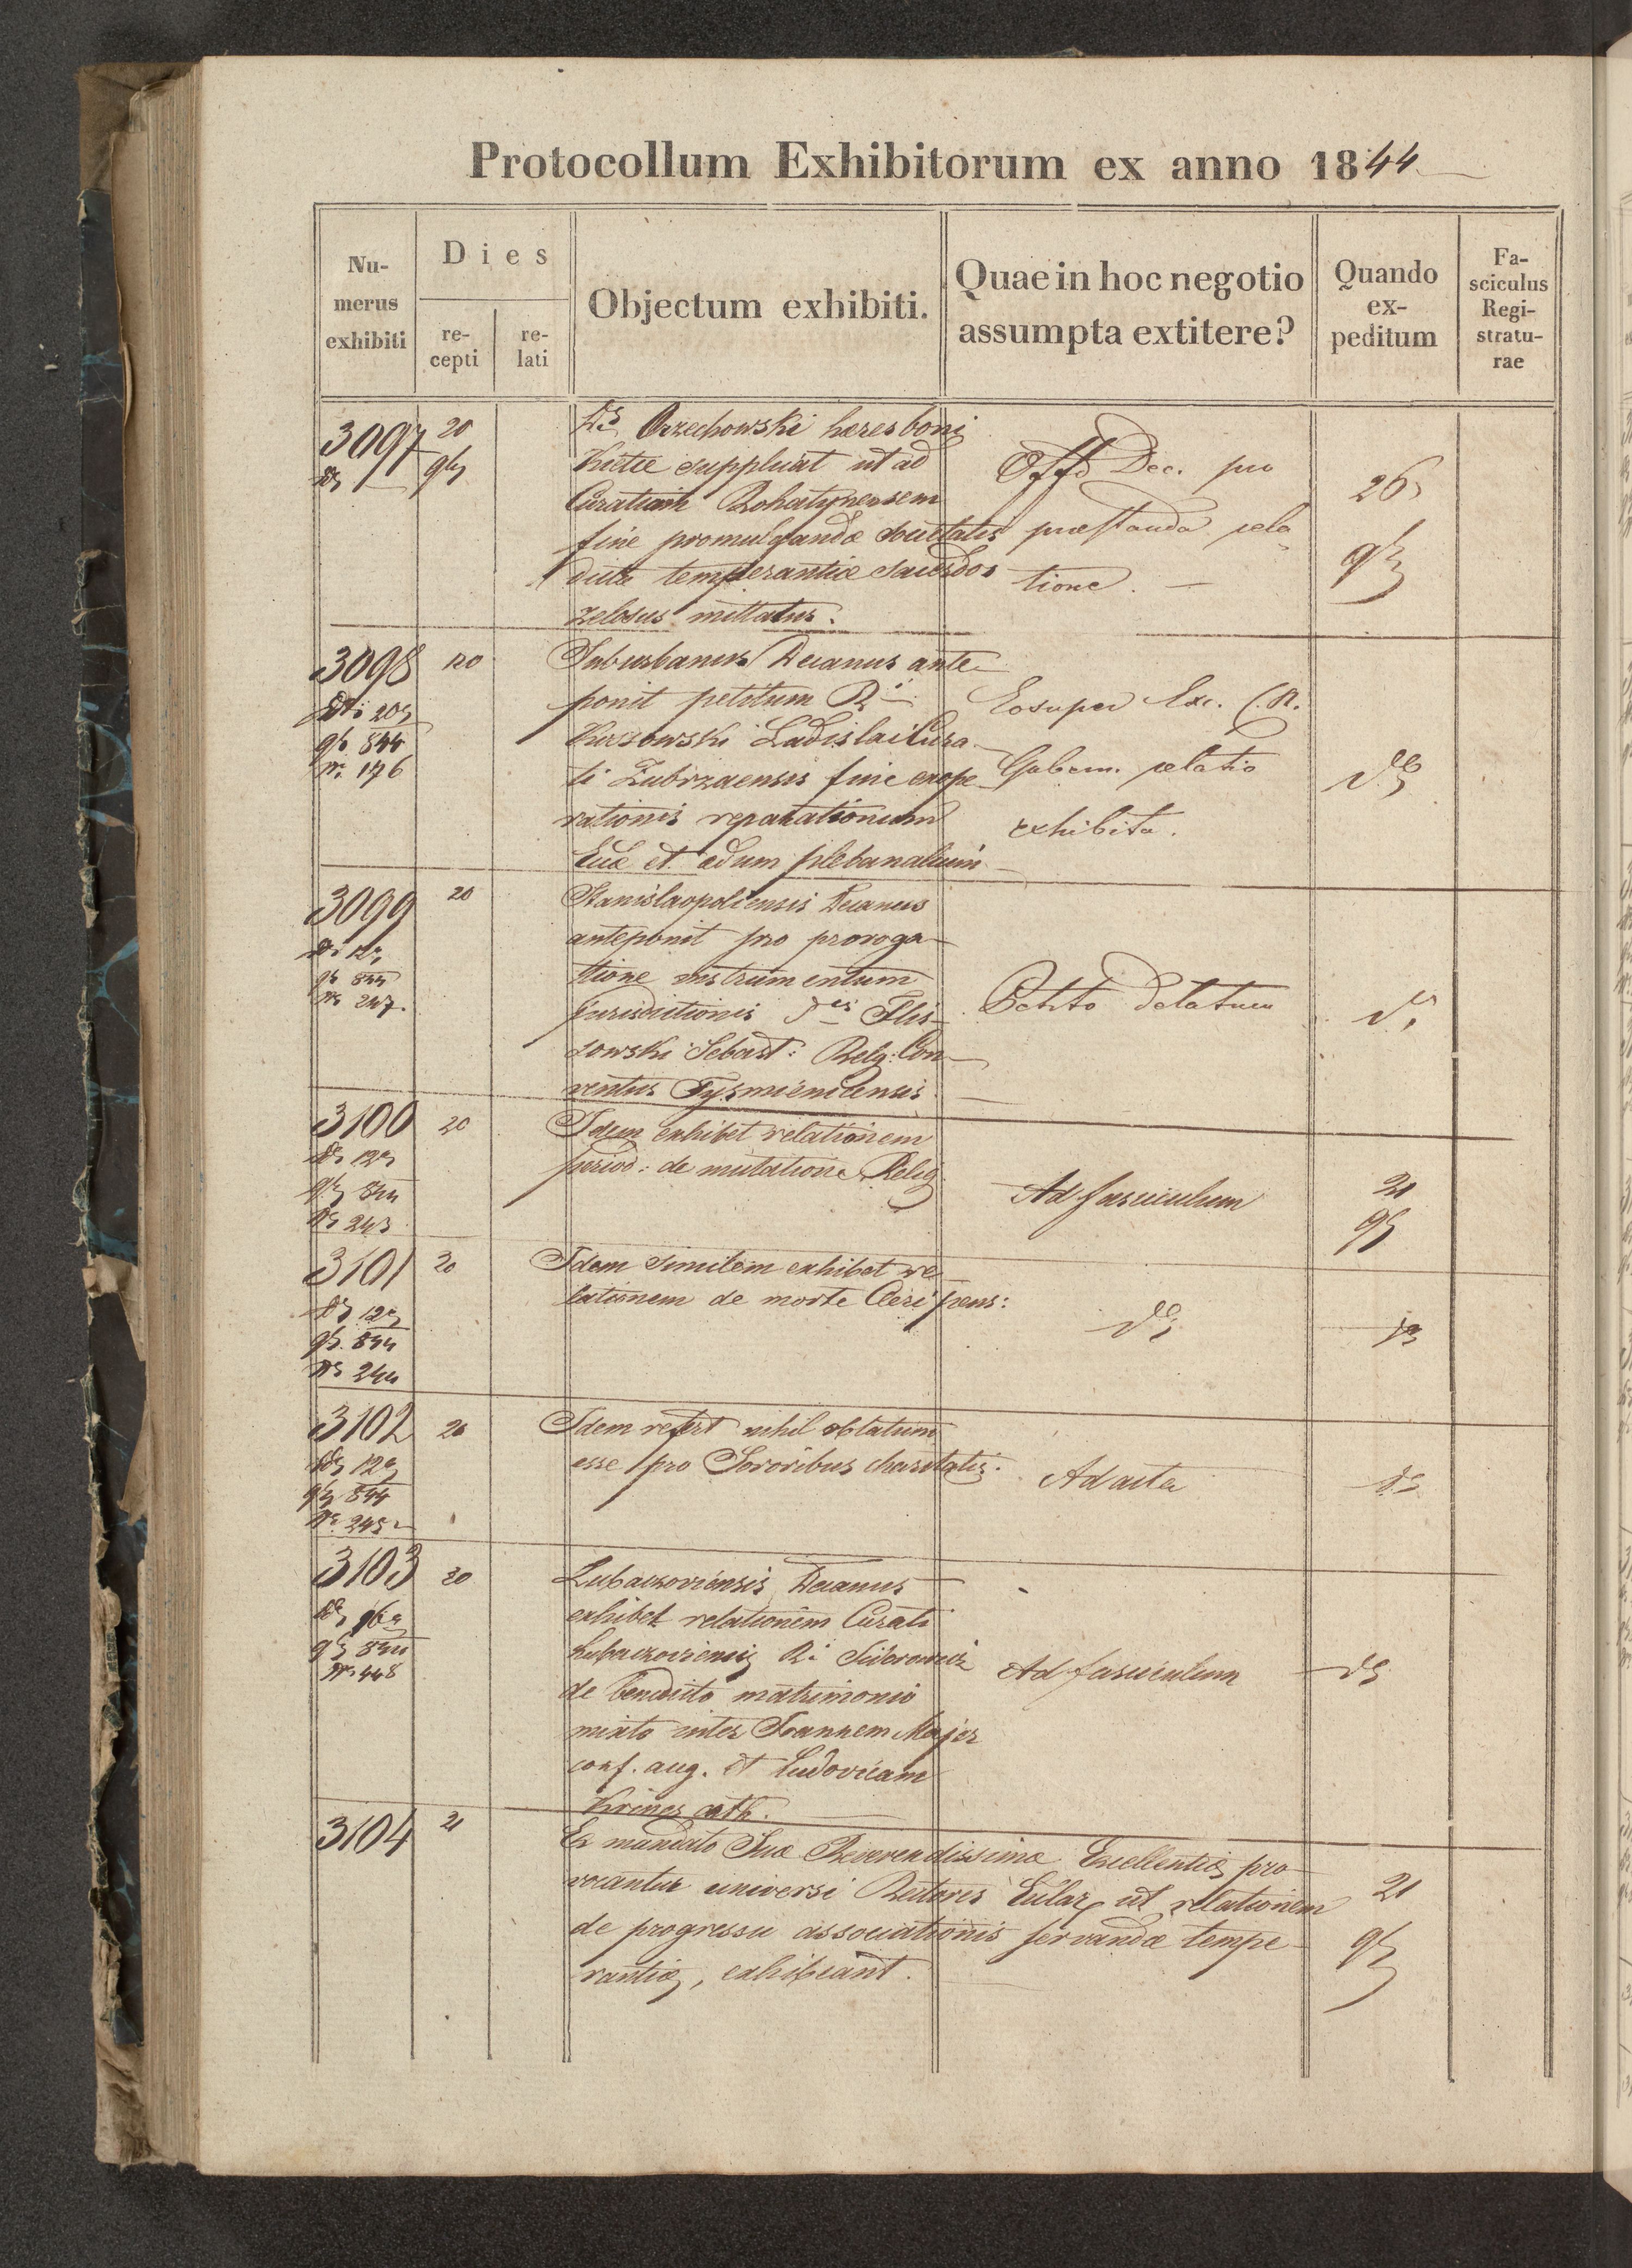 Protocollum Exhibitorum ex anno 1844
Nu-
merus
exhibiti
Dies
re-
cepti
re-
lati
Objectum exhibiti.
Quae in hoc negotio
assumpta extitere?
Quando
ex-
peditum
Fa-
sciculus
Regi-
stratu-
rae
3097
20
9br
Orzechowski hæres boni
suppluat ut ad
Curatiam Rohatynensem
fine promulgandæ societatis
temperantiæ sacerdos
zelosus mittatur.
Offo Dec. pro
præstanda rela
tione.
26
9br
3098
20
9br 844
Nr. 176
Suburbanus Decanus ante
ponit petitum R
Ladislai Cura
ti Zubrzaensis fine exope
rationis reparationum
Eccl et ædium plebanalium
Eosuper Exc. C. R.
Gubern. relatio
exhibita.
3099
20
9br 844
Nr 247.
Stanislaopoliensis Decanus
anteponit pro proroga
tione instrumentum
jurisdictionis Flis
sowski Sebast: Relg: Con
ventus Tysmienicensis
Petito delatum
3100
20
9br 844
Nr 243
Idem exhibet relationem
period: de mutatione Relig
Ad fasciculum
21
9br
3101
20
9br. 844
Nr 244
Idem similem exhibet re
lationem de morte Cleri
3102
20
9br 844
Nr. 245
Idem refert nihil oblatum
esse pro Sororibus charitatis.
Ad acta
3103
20
9br 844
Nr 448
Lubaczoviensis Decanus
exhibet relationem Curati
Lubaczoviensis R.
de benedicto matrimonio
mixto inter Joannem Majer
conf. aug. et Ludovicam
cath.
Ad fasciculum
3104
21
Ex mandato Suæ Reverendissimæ Excellentiæ pro
vocantur universi Rectores Eclar ut relationem
de progressu associationis servandæ tempe
rantiæ, exhibeant.
21
9br